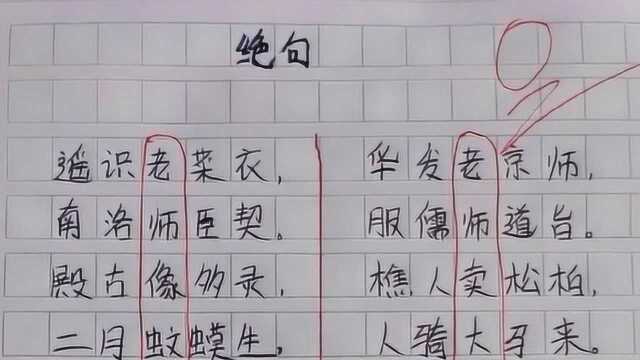 绝句
遥识老菜衣，
南洛师臣契。
殿古像多灵，
二月蚊蟆生，
华发老京师，
服儒师道旨。
樵人卖松柏，
人骑大马来。